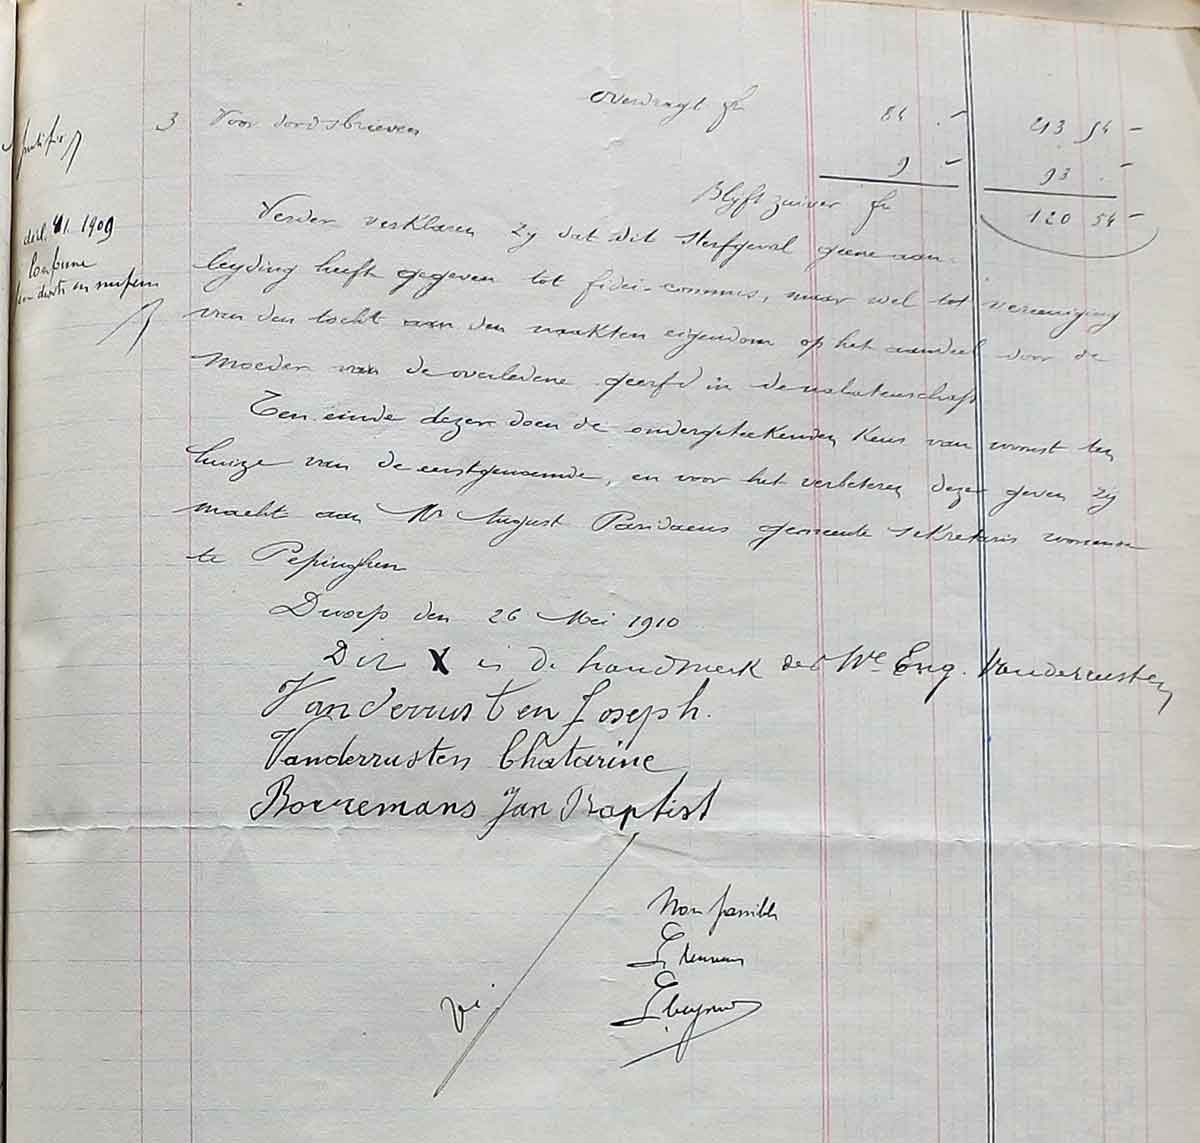 Overdragt fr 84 .- 213 54 -
3 Voor doodsbrieven 9 - 93 . -
Blijft zuiver fr 120 54 -
Verder verklaren zij dat dit sterfgeval geene aan-
leyding heeft gegeven tot fidei-commis, maar wel tot vereeniging
van den tocht aan den naakten eigendom op het aandeel door de
moeder van de overledene geerfd in de nalatenschap
Ten einde dezer doen de ondergeteekenden keus van woonst ten
huize van de eerstgenoemde, en voor het verbeteren dezer geven zij
macht aan Mr August Paridaens gemeente sekretaris wonende
te Pepinghen
Dworp den 26 Mei 1910
Dit X is de handmerk der We Eug. Vanderrusten
Vanderrusten Joseph.
Vanderrusten Chatarine
Borremans Jan Baptist
justifié
decl. 41. 1909
Conforme
Non passible